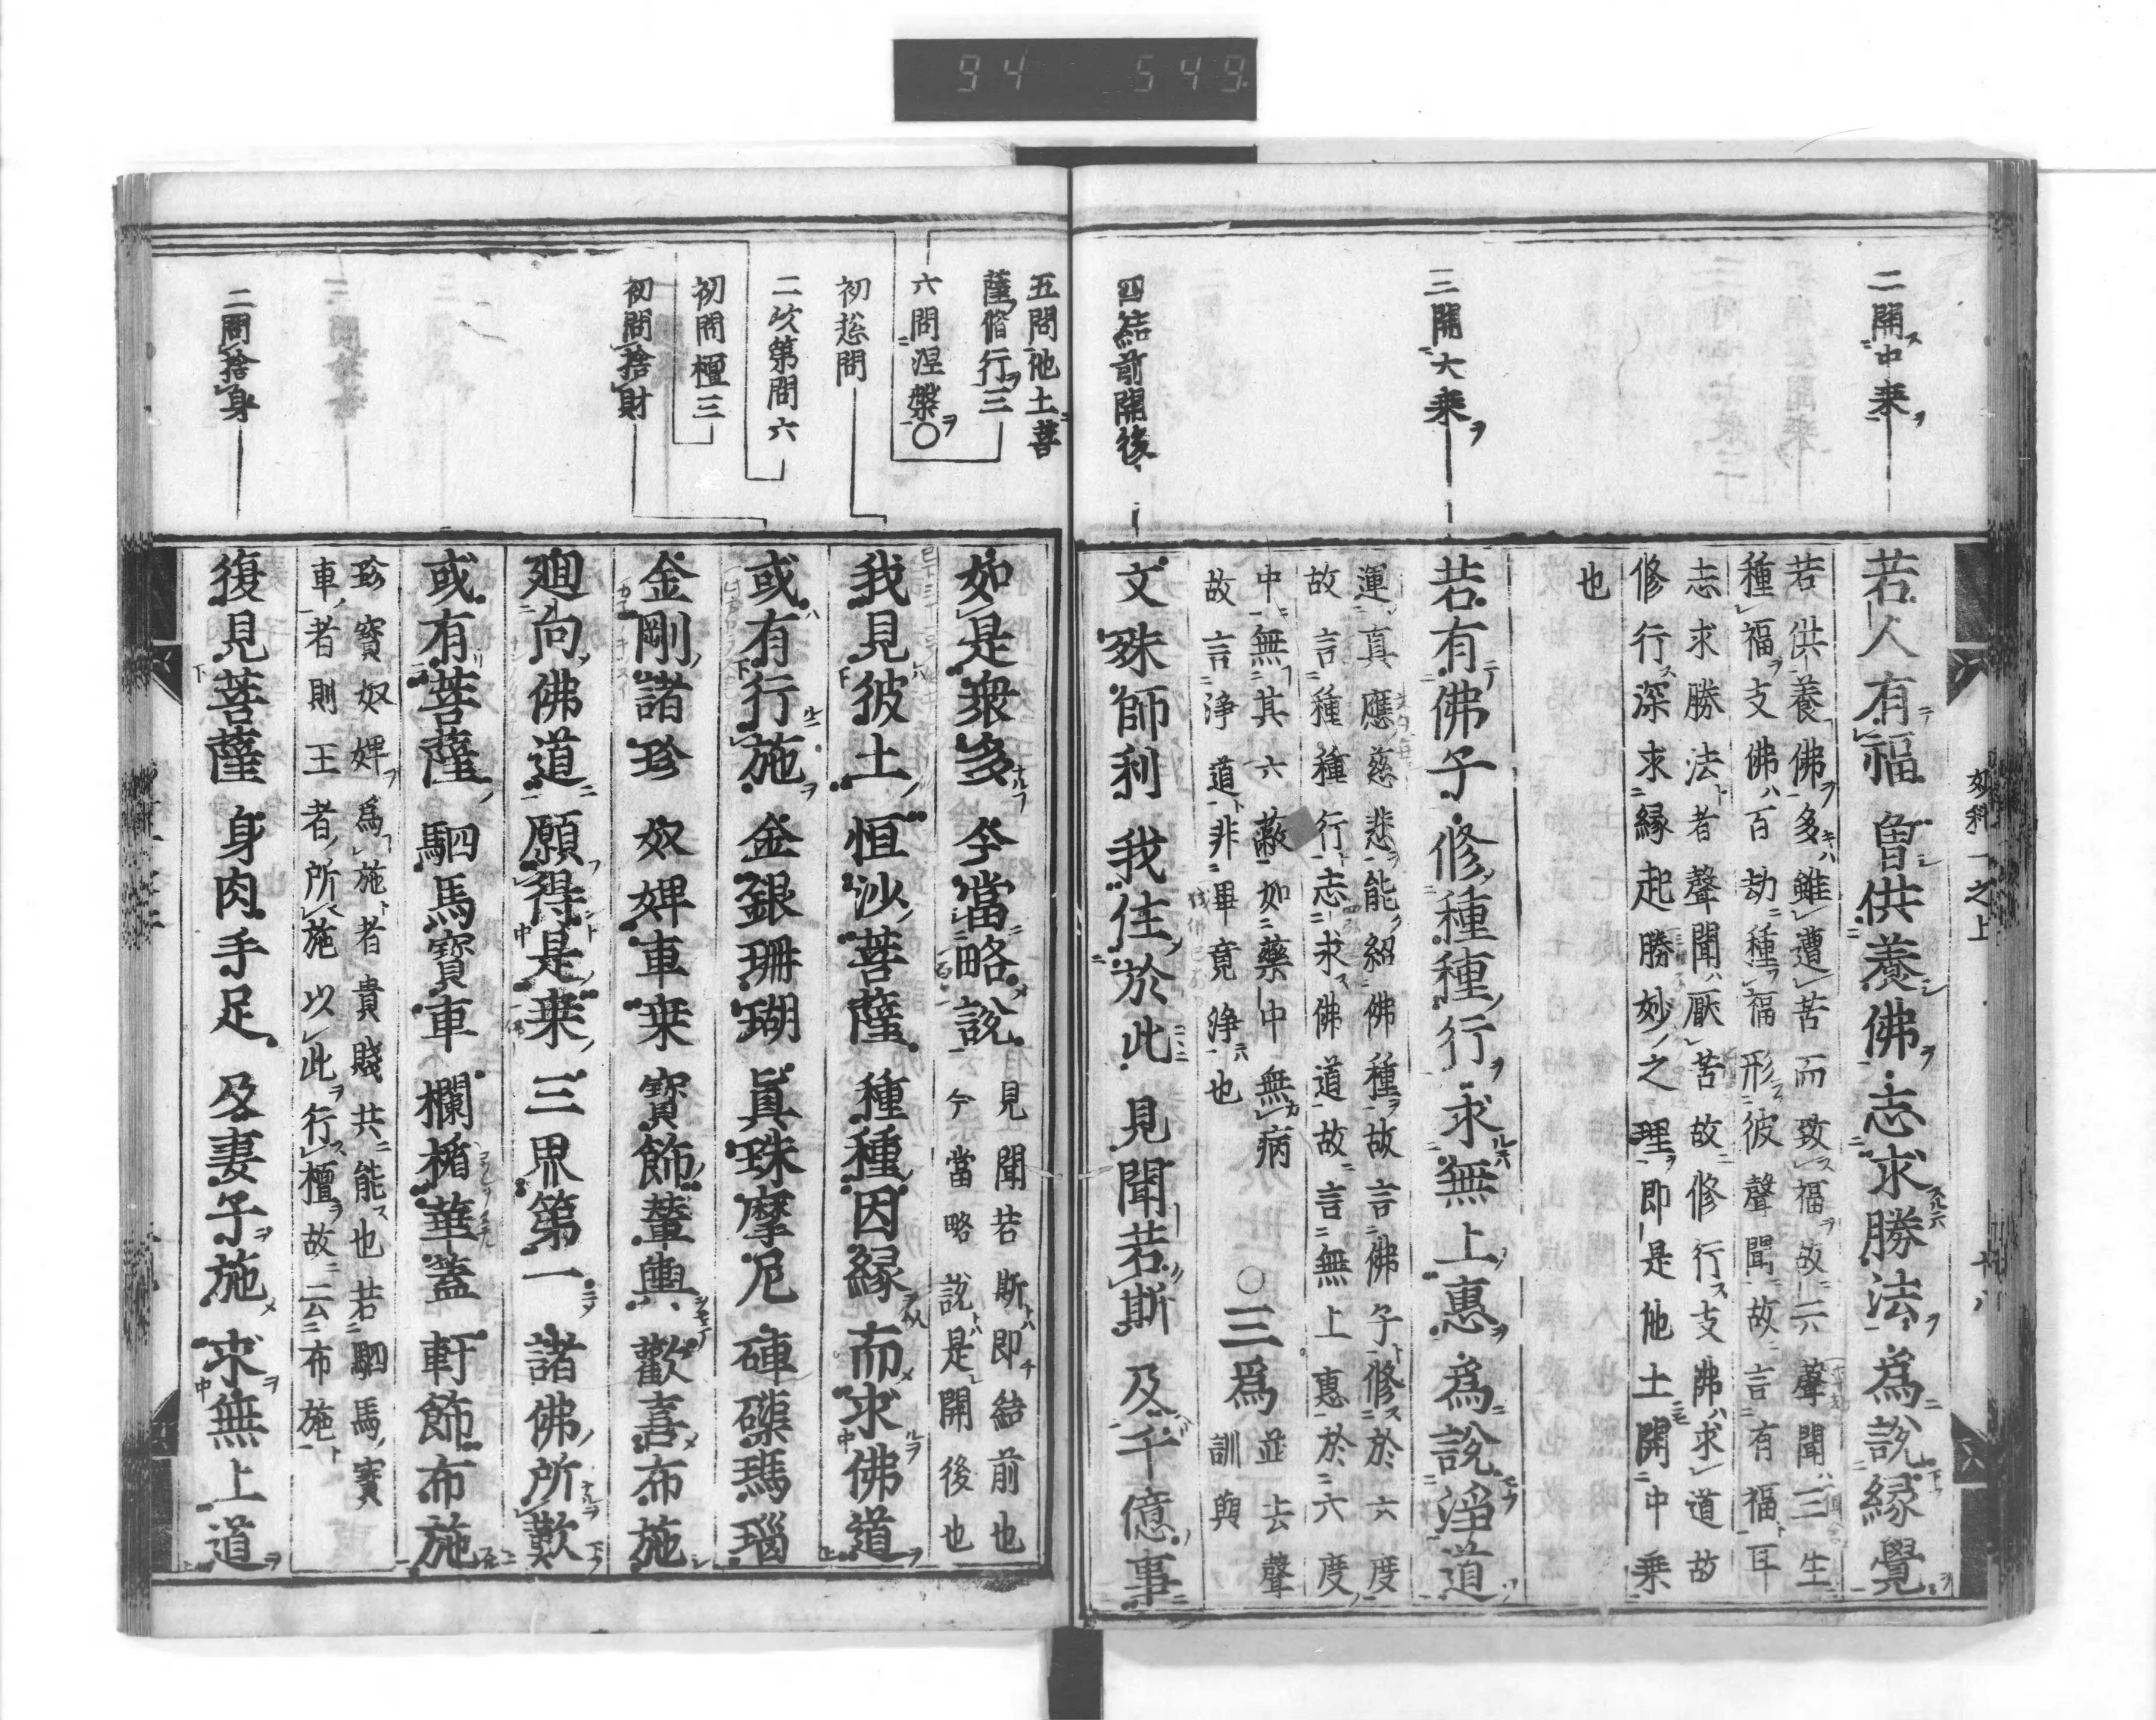 94 549
妙科一之上
十八
二開中乗
若人有福 曾供養佛 志求勝法 為說緣覺
若供養佛多雖遭苦而致福故云聲聞三生
種福支佛百劫種福形彼聲聞故言有福耳
志求勝法者聲聞厭苦故修行支佛求道故
修行深求緣起勝妙之理即是他土開中乗
也
三開大乗
若有佛子 修種種行 求無上惠 為說淨道
運真應慈悲能紹佛種故言佛子修於六度
故言種種行志求佛道故言無上惠於六度
中無其六蔽如藥中無病
故言淨道非畢竟淨也
○三為並去聲訓與
四結前開後
文殊師利 我住於此 見聞若斯 及千億事
五問他土菩
薩偕行三
六問涅槃○
如是衆多 今當略說
見聞若斯即結前也
今當略說是開後也
初惣問
我見彼土 恒沙菩薩 種種因緣 而求佛道
二次第問六
初問檀三
初問捨財
或有行施 金銀珊瑚 眞珠摩尼 硨磲瑪瑙
金剛諸珍 奴婢車乗 寶飾輦輿 歡喜布施
廻向佛道 願得是乗 三界第一 諸佛所歎
或有菩薩 駟馬寶車 欄楯華蓋 軒飾布施
珍寶奴婢為施者貴賤共能也若駟馬寶
車者則王者所施以此行檀故云布施
二問捨身
復見菩薩 身肉手足 及妻子施 求無上道